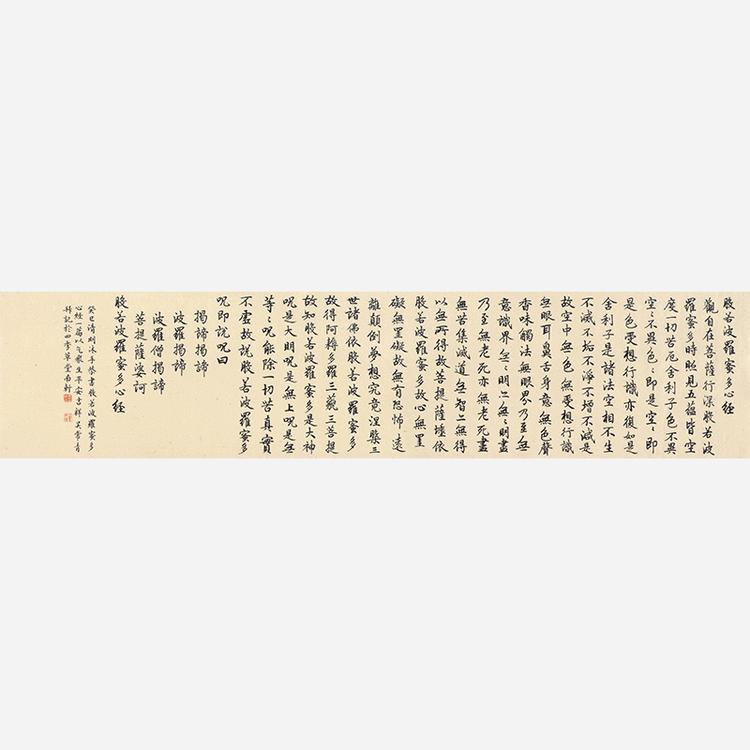 般若波羅蜜多心經
觀自在菩薩行深般若波
羅蜜多時照見五蘊皆空
度一切苦厄舍利子色不異
空空不異色色即是空空即
是色受想行識亦復如是
舍利子是諸法空相不生
不滅不垢不淨不增不減是
故空中無色無受想行識
無眼耳鼻舌身意無色聲
香味觸法無眼界乃至無
意識界無無明亦無無明盡
乃至無老死亦無老死盡
無苦集滅道無智亦無得
以無所得故菩提薩埵依
般若波羅蜜多故心無罣
礙無罣礙故無有恐怖遠
離顛倒夢想究竟涅槃三
世諸佛依般若波羅蜜多
故得阿耨多羅三藐三菩提
故知般若波羅蜜多是大神
呪是大明呪是無上呪是無
等等呪能除一切苦真實
不虛故說般若波羅蜜多
呪即說呪曰
揭諦揭諦
波羅揭諦
波羅僧揭諦
菩提薩婆訶
般若波羅蜜多心經
癸巳清明沐手恭書般若波羅蜜多
心經一篇以乞眾生平安吉祥吳常青
拜記於四學草堂南軒